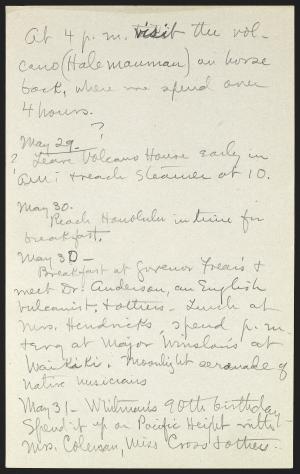 At 4 p.m. visit the vol-
cano (Halemaumau) on horse
back, where we spend over
4 hours.
May 29. ?
? Leave Volcano House early in
a.m. & reach Steamer at 10.
May 30.
Reach Honolulu in time for
breakfast.
May 30 –
Breakfast at Governor Frear's &
meet Dr. Anderson, an English
vulcanist, & others – Lunch at
Mrs. Hendricks, spend p.m.
& evg at Major Winslow's at
Waikiki. Moonlight serenade of
native musicians
May 31 – Whitman's 90th birthday
Spend it up on Pacific Height with
Mrs. Coleman, Miss Cross & others.